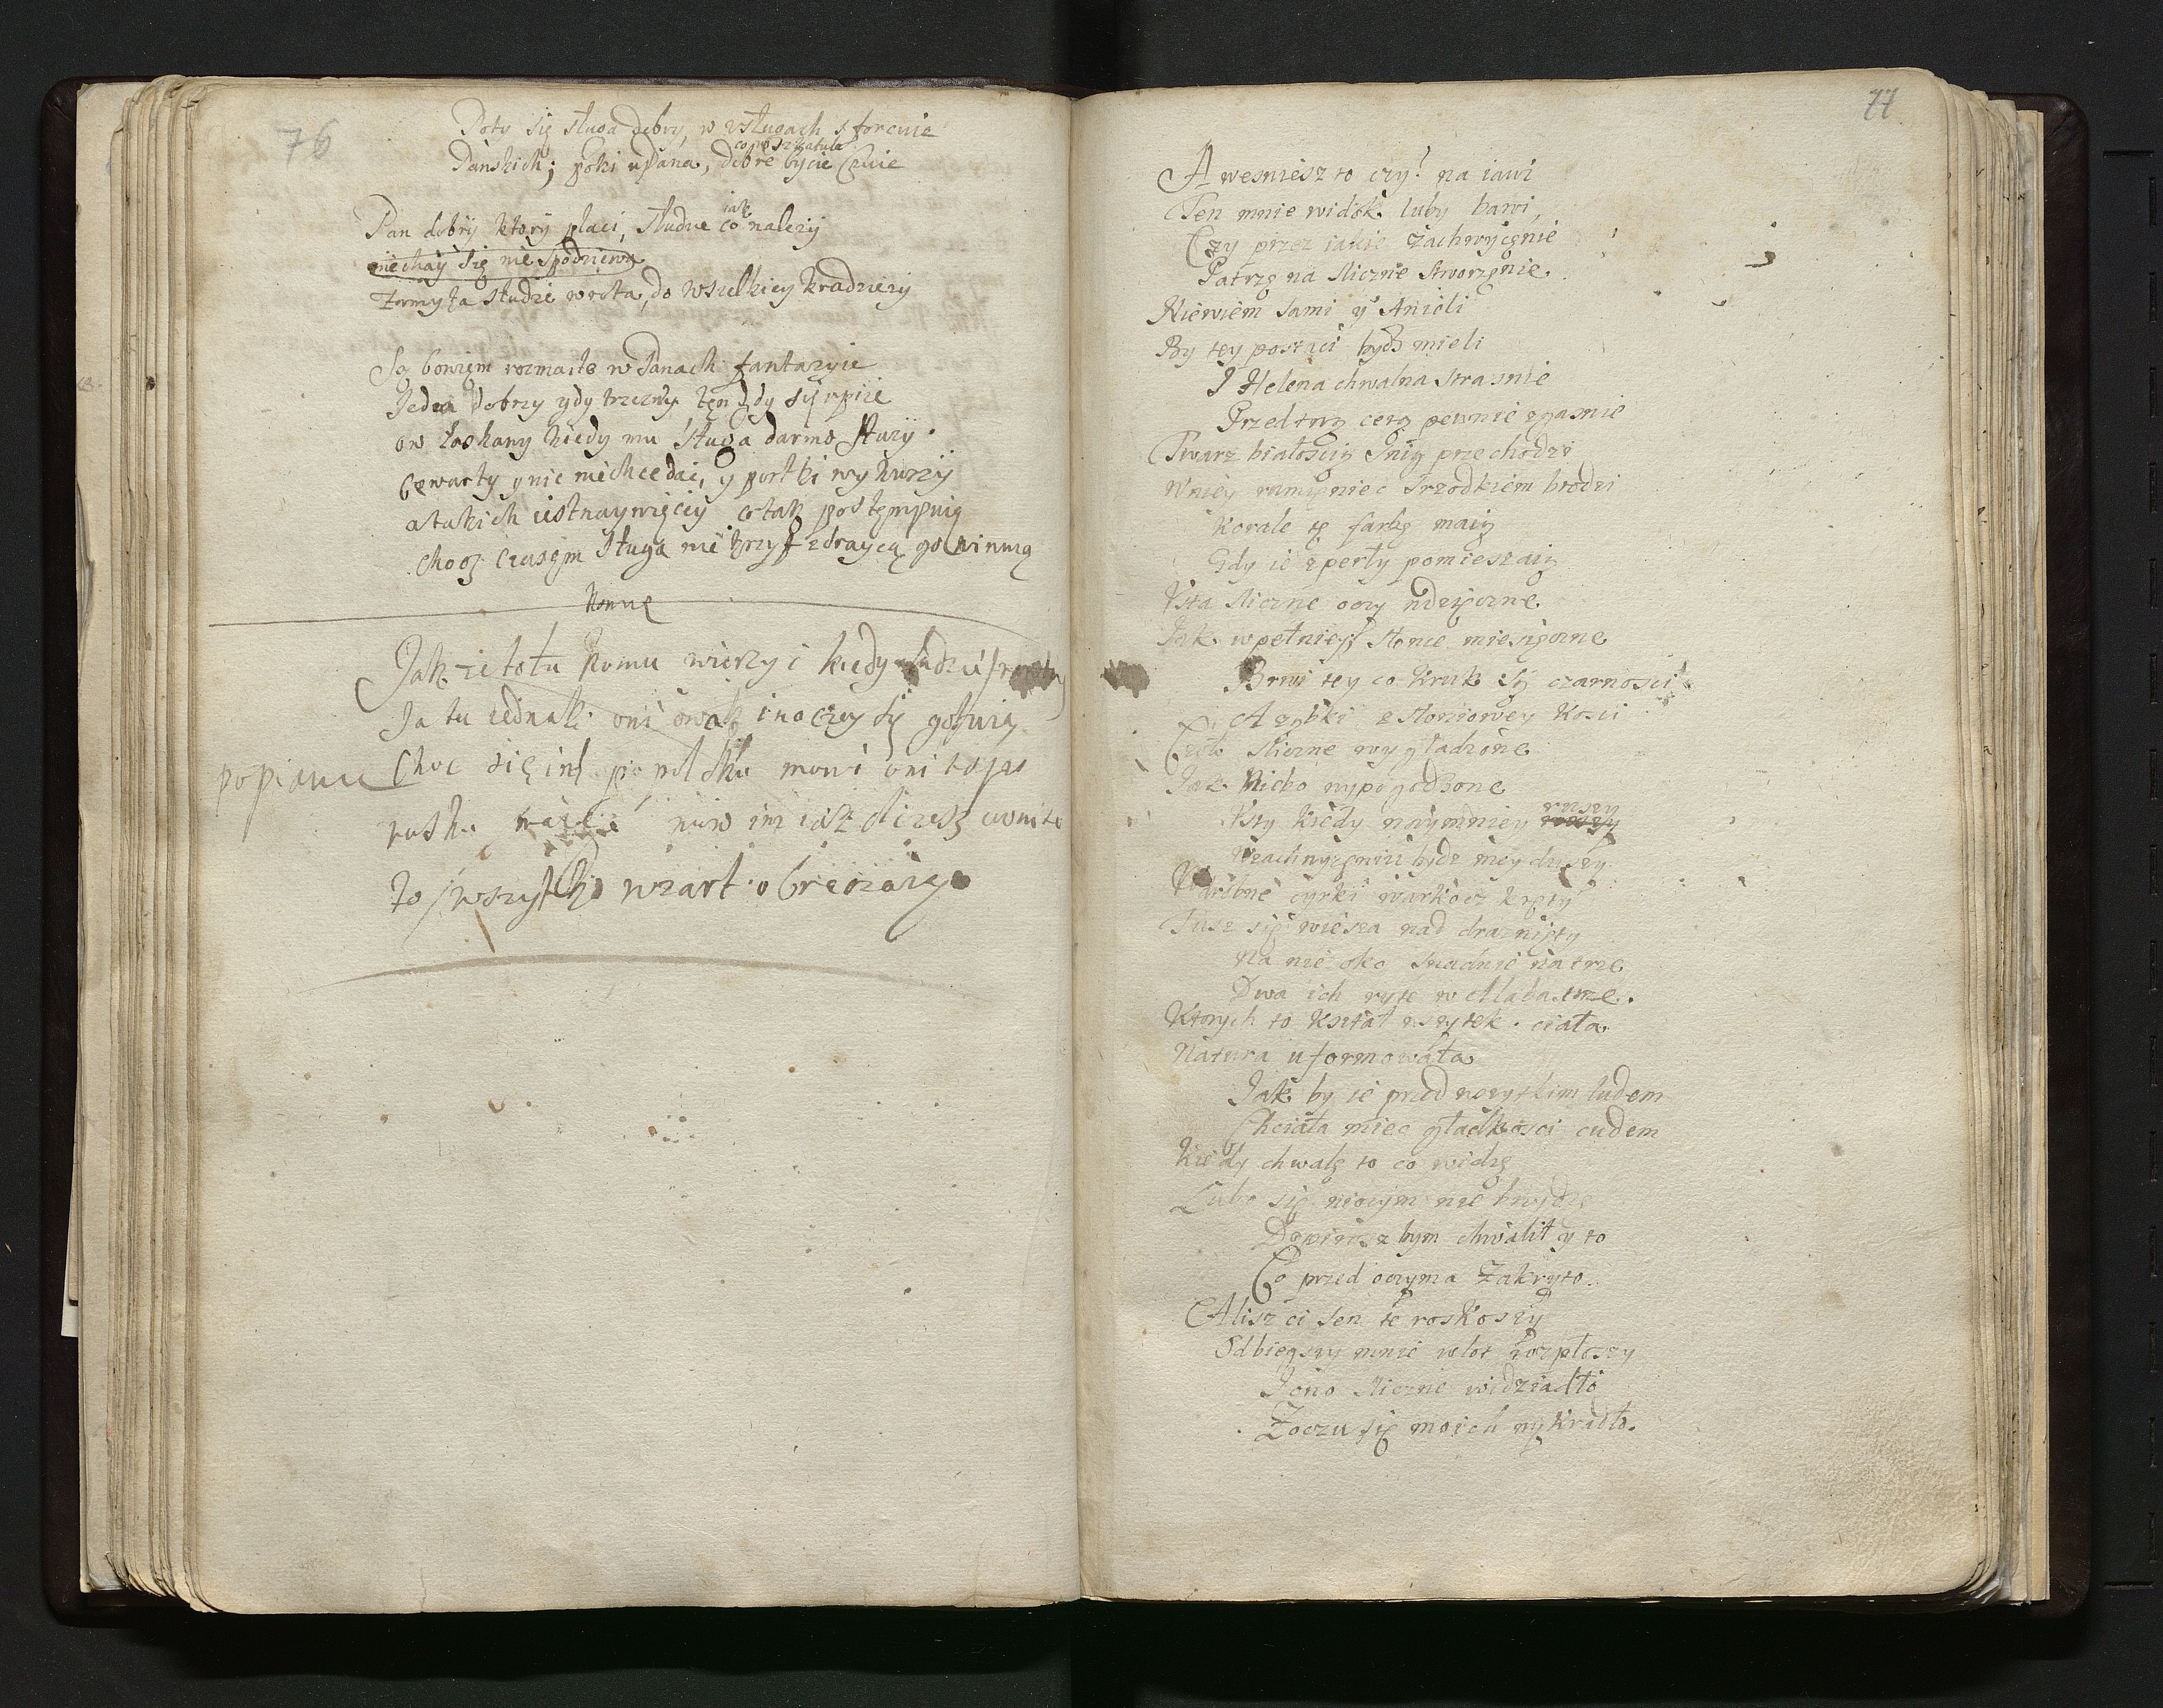 76
Poty się sługa dobry, w usługach
co po szkatule
Pańskich; poki u Pana, dobre bycie czuie
iak
Pan dobry ktory płaci, słudze co nalezy
niechay się nie spodziewa
do wszelkiey kradziezy
Są bowiem rozmaite w Panach fantazyie
Jeden dobry gdy trzezwy ten gdy się upiie
ow łaskawy kiedy mu sługa darmo słuzy.
Czwarty y nic niechce dac, y portki wykurzy
a takich iest naywięcey co tak postempuią
choc czasem sługa nie krzyw zdraycą go mianuią
Jak ze to tu komu wierzyc kiedy
Ja tu iednak oni owak inaczey się gotuią
popianu Choc się im po polsku mowi oni to po
rusku
to wszystko w zart obracaią
77
A we snie sz to czy? na iawi
Ten mnie widok luby bawi,
Czy przez iakie zachwycęnie
Patrzę na sliczne stworzęnie.
Niewiem sami y Anieli
By tey postaci bydz mieli
I Helena chwalna strasnie
Przed twą cerą pewnie zgasnie
Twarz białoscią snig przechodzi
W niey rumięniec srzodkiem brodzi
Korale tę farbę maią
Gdy ie z perły pomieszaią
Usta sliczne oczy wdzięczne
Jak w pełniey słonce miesięczne
Brwi tey co kruk są czarnosci
A ząbki z słoniowey kosci
Czoło sliczne wygładzone
Jak Niebo wypogodzone
ruszy
Usty kiedy naymniey
W zachwycęniu bydz mey duszy
W drobne cyrki warkocz kręty
Tusz się wiesza nad
Na nie oko snadnie natrze
Dwa ich ryte w Alabastrze.
Ktorych to kształt wszytek ciała
Natura uformowała
Jak by ie przed wszytkim ludem
Chciała miec gładkosci cudem
Kiedy chwalę to co widzę
Lubo się niczym nie brzydzę
bym chwalił y to
Co przed oczyma zakryto.
Alisz ci sen te roskoszy
Odbiegszy mnie wlot rozpłoszy
I ono sliczne widziadło
Z oczu się moich wykradło.